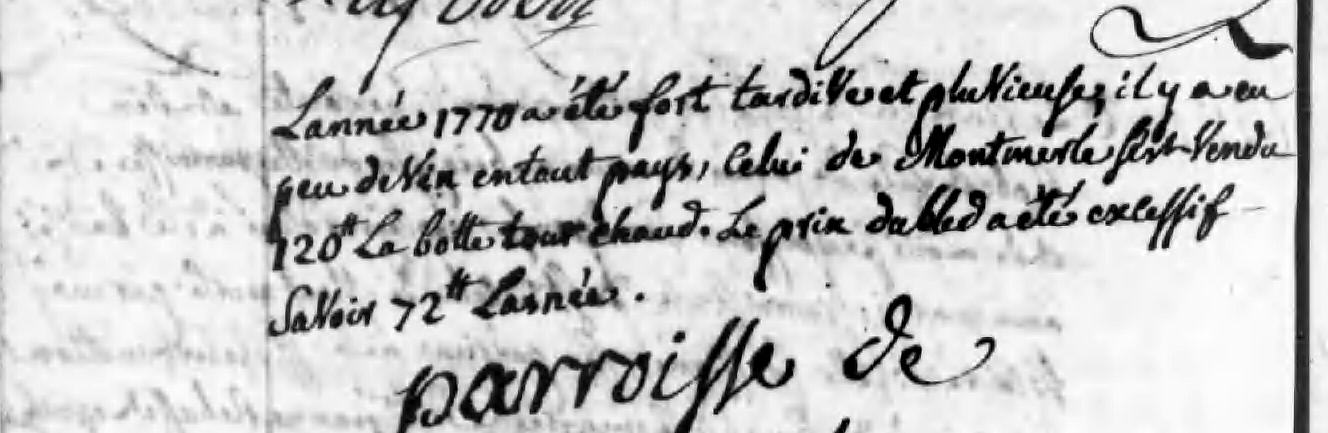 Lannée 1770 a été fort tardive et pluvieuse, il y a eu
peu de vin en tout pays, Celui de Montmerle sest vendu
120tt La botte tout chaud. Le prix du bled a été excessif
Savoir 72tt Lasnée.
parroisse de